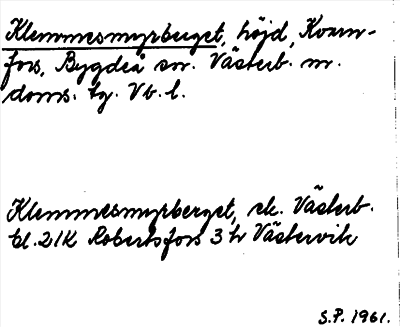 Klemmesmyrberget, höjd, Kvarn-
fors, Bygdeå sn. Västerb. m.
doms. tg. Vb. l.
Klemmesmyrberget, ek. Västerb.
bl. 21K Robertsfors 3 h Västervik
S.P. 1961.